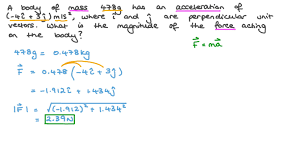 A body of mass 478g has an acceleration of
(-4i + 3j) m/s², where i and j are perpendicular unit
vectors. what is the magnitude of the force acting
on the body?
F⃗ = ma⃗
478g = 0.478kg
F⃗ = 0.478 (-4i + 3j)
= -1.912i + 1.434j
|F⃗| = √(-1.912)² + 1.434²
= 2.39N